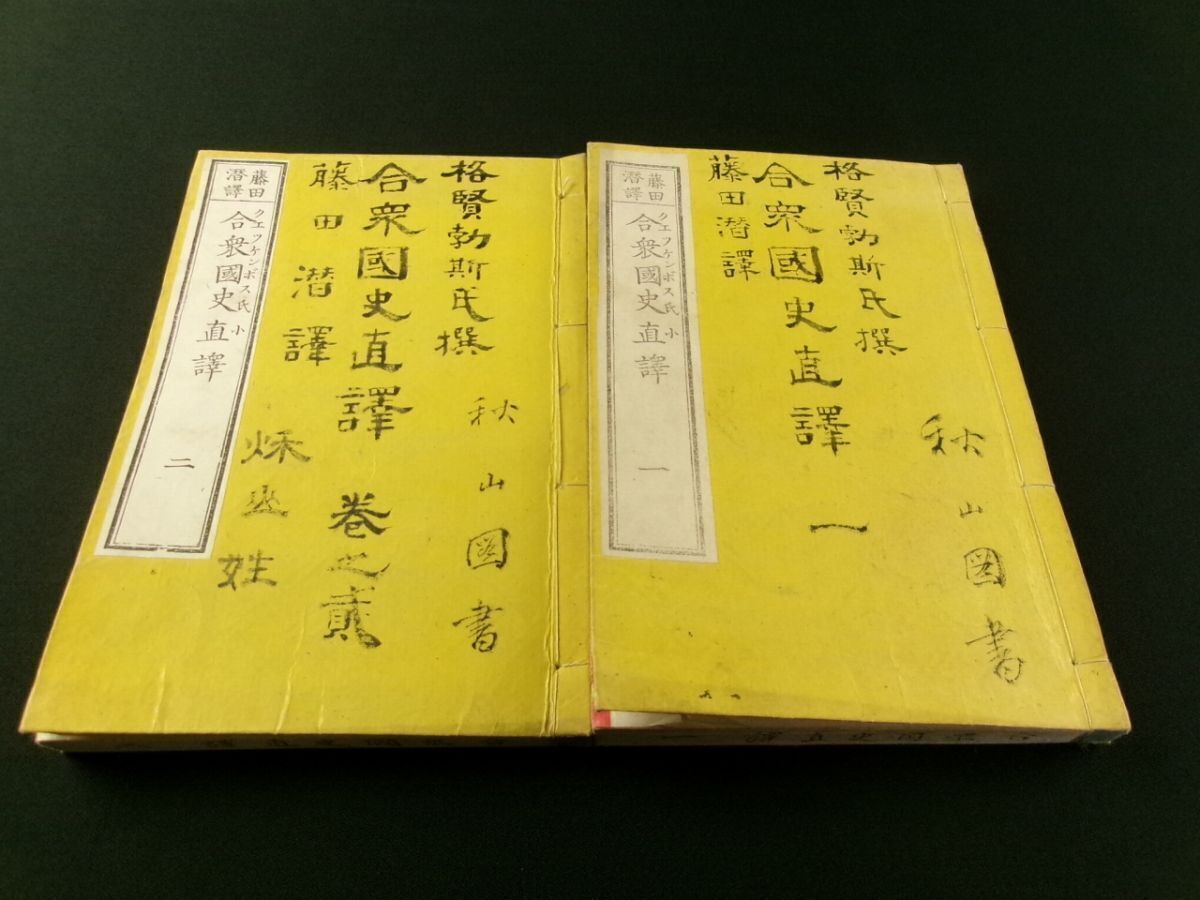 格賢勃斯氏撰
秋山圖書
合衆國史直譯 一
藤田潜譯
藤田
潜譯
クエツケンボス氏 小
合衆國史直譯 一
格賢勃斯氏撰
秋山圖書
合衆國史直譯 巻之貳
藤田潜譯
姓
藤田
潜譯
クエツケンボス氏 小
合衆國史直譯 二